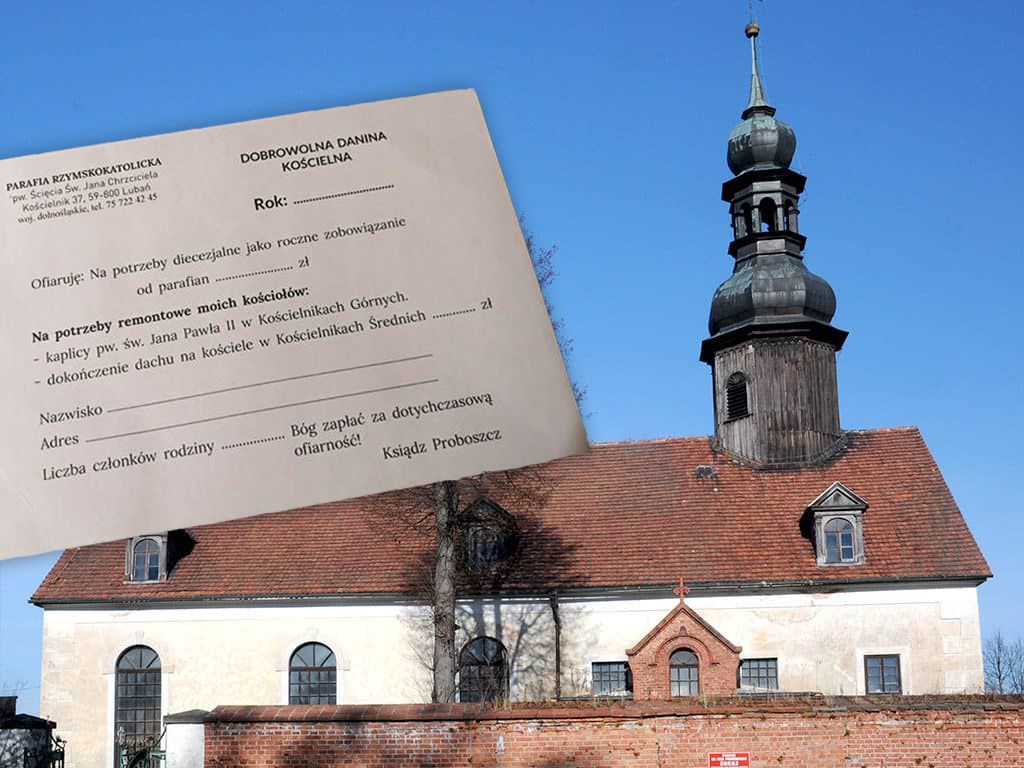 PARAFIA RZYMSKOKATOLICKA
pw. Ścięcia Św. Jana Chrzciciela
Kościelnik 37, 59-800 Lubań
woj. dolnośląskie, tel. 75 722 42 45
DOBROWOLNA DANINA
KOŚCIELNA
Rok: ............................
Ofiaruję: Na potrzeby diecezjalne jako roczne zobowiązanie
od parafian ...................... zł
Na potrzeby remontowe moich kościołów:
- kaplicy pw. św. Jana Pawła II w Kościelnikach Górnych.
- dokończenie dachu na kościele w Kościelnikach Średnich ............ zł
Nazwisko
Adres
Liczba członków rodziny .................. Bóg zapłać za dotychczasową
ofiarność!
Ksiądz Proboszcz